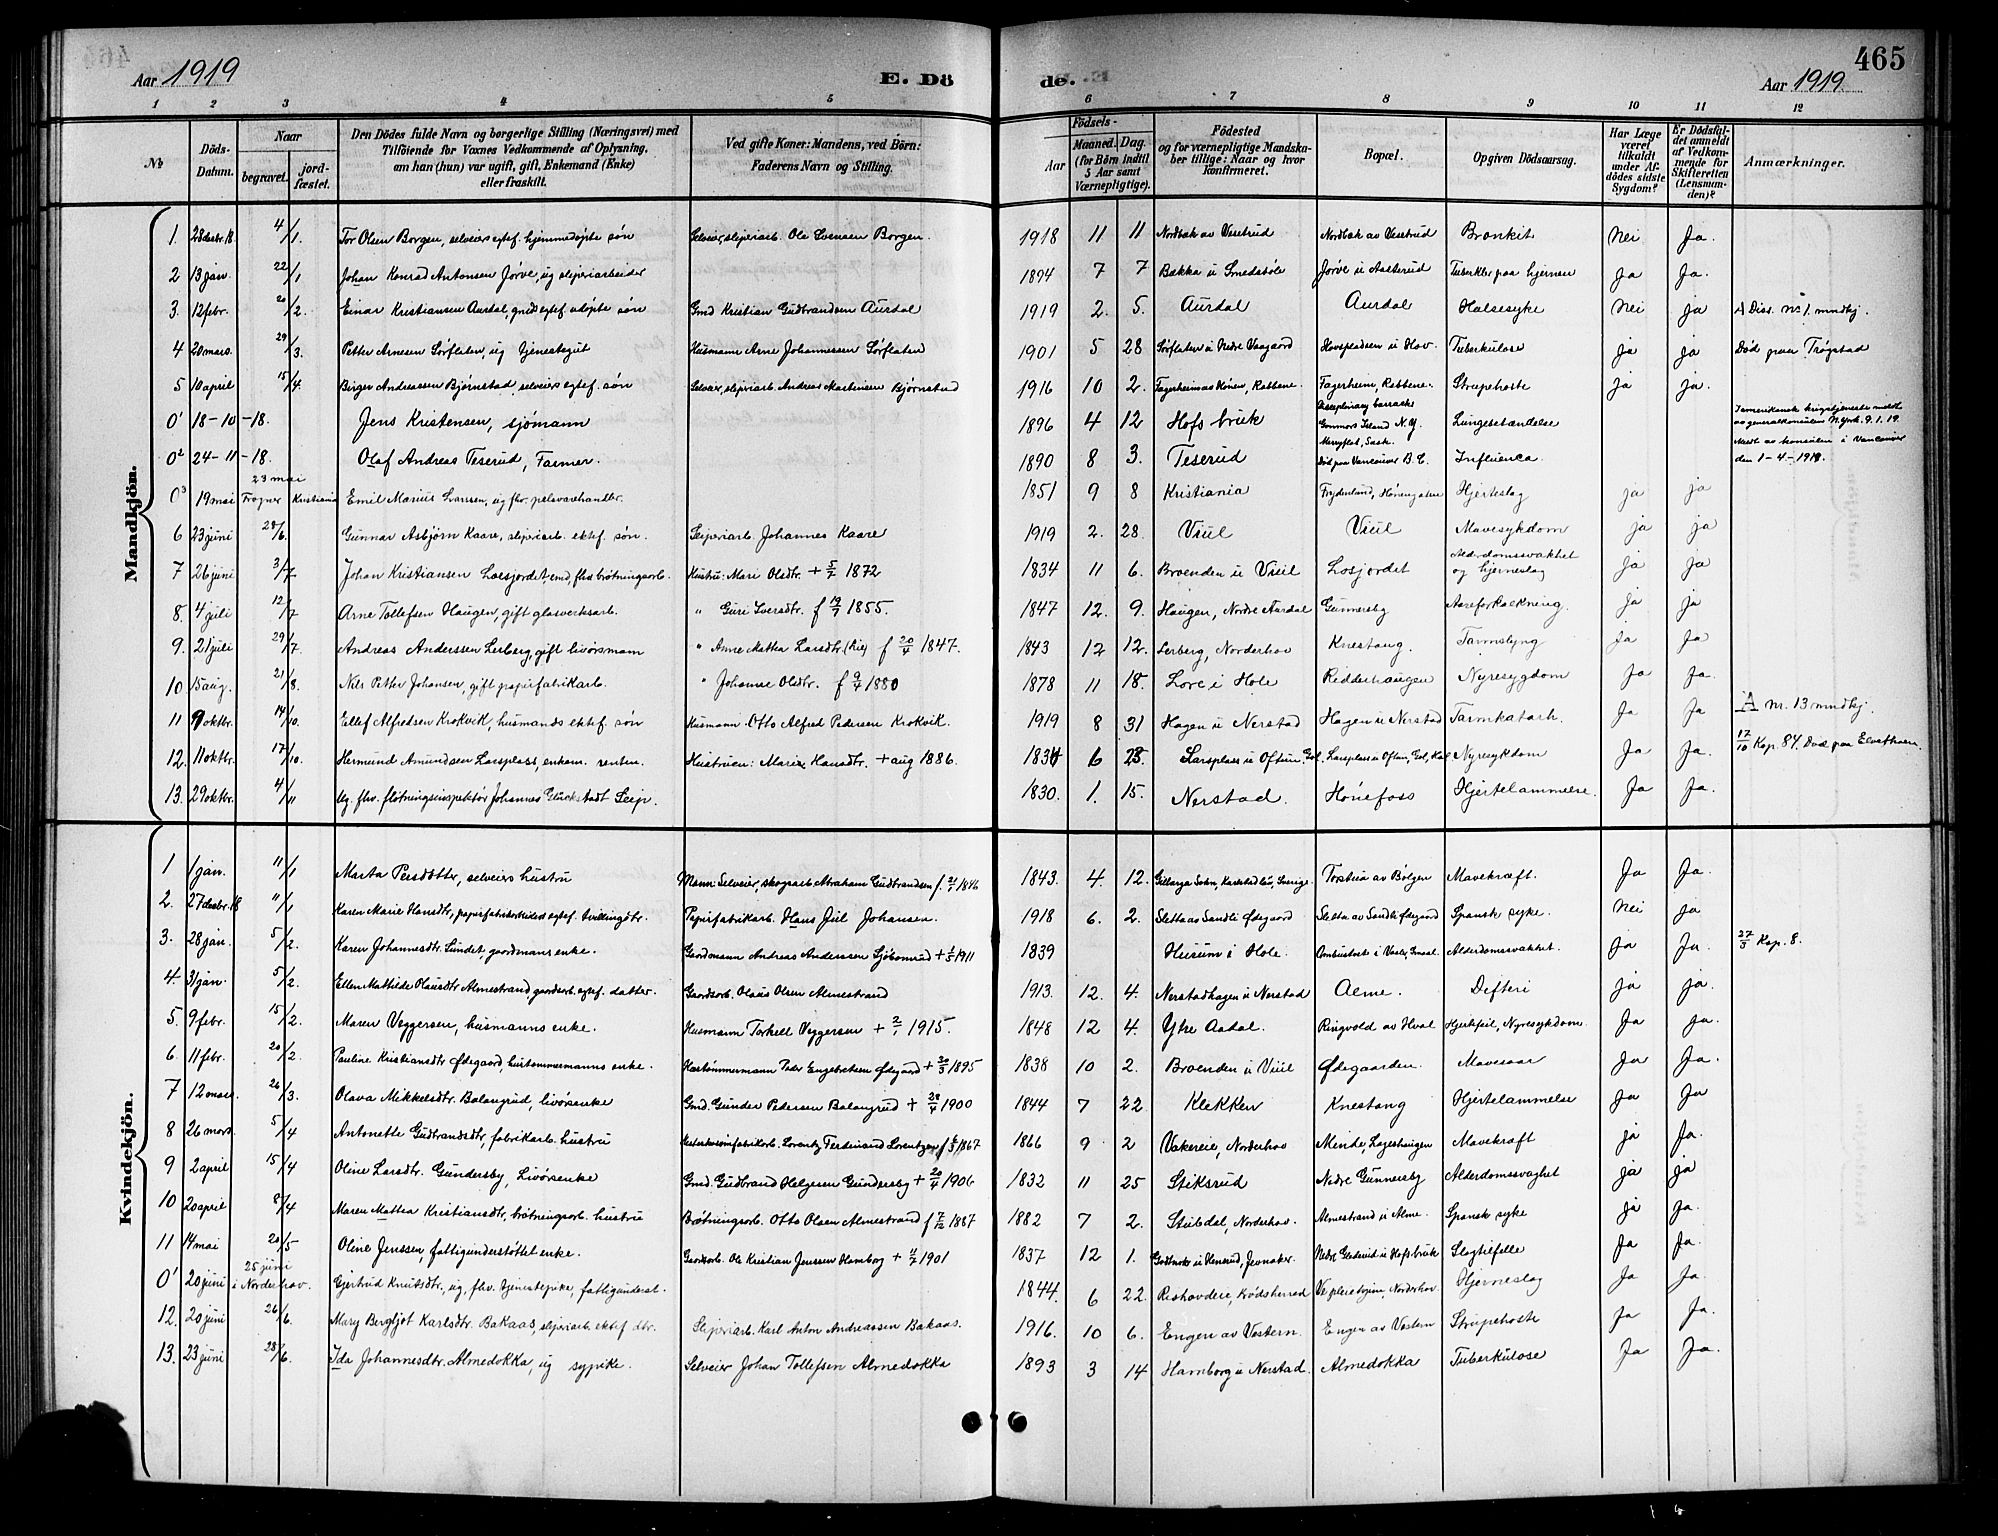 465
Aar 1919 E. Dö de. Aar 1919.
1 2 3 4 5 6 7 8 9 10 11 12
No Döds-Datum. Naar begravet. jordfæstet. Den Dödes fulde Navn og borgerlige Stilling (Næringsvei) med Tilföiende for Voxnes Vedkommende af Oplysning, om han (hun) var ugift, gift, Enkemand (Enke) eller fraskilt. Ved gifte Koner: Mandens, ved Börn: Faderens Navn og Stilling. Aar Födsels-Maaned. Dag. (for Börn indtil 5 Aar samt Værnepligtige). Födested og for værnepligtige Mandskaber tillige: Naar og hvor konfirmeret. Bopæl. Opgiven Dödsaarsag. Har Læge været tilkaldt under Afdödes sidste Sygdom? Er Dödsfaldet anmeldt af Vedkommende for Skifteretten (Lensmanden)? Anmærkninger.
Mandkjön.
1. 28 desbr. 18. 4/1. Tor Olsen Borgen, selveiers egtef. hjemmedøpte søn Selveier, sliperiarb. Ole Svensen Borgen. 1918 11 11 Nordbak av Veserud Nordbak av Veserud Bronkit Nei Ja.
2 13 jan. 22/1 Johan Konrad Antonsen Jørve, ug sliperiarbeider 1894 7 7 Bakka u Smedsøle Jørve u Aalterud Tuberkler paa hjernen Ja Ja.
3. 12 febr. 20/2. Einar Kristiansen Aurdal, gmds egtef. udøpte søn Gmd Kristian Gudbrandsen Aurdal 1919 2. 5. Aurdal Aurdal Halsesyke Nei ja A Diss. nr 1. mndkj.
4 20 mars. 29/3. Petter Arnesen Sørflaten, ug tjenestegut Husmann Arne Johannessen Sørflaten 1901 5 28 Sørflaten u Nedre Vaagaard Hovspladsen u Hov. Tuberkulose ja ja Død paa Trøgstad
5 10 april 15/4. Birger Andreassen Bjørnstad, selveiers egtef. søn Selveier, sliperiarb. Andreas Martinsen Bjørnstad 1916 10 2. Fagerheim av Kønen, Rabbene. Fagerheim, Rabbene. Strupehoste ja ja.
0¹ 18-10-18. Jens Kristensen, sjömann 1896 4 12 Hofs bruk Disciplinary barracks Gonnors Island N.Y. Lungebetændelse I amerikansk krigstjeneste meldt av generalkonsulen N. York. 9.1.19.
0² 24-11-18. Olaf Andreas Teserud, Farmer. 1890 8 3. Teserud Merryflat, Sask. Død paa Vancouver B.C. Influenca Meldt av konsulen i Vancouver den 1-4-1919.
0³ 19 mai 23 mai Frogner Kristiania Emil Marius Larssen, ug fhv. pelsvarehandler. 1851 9 8 Kristiania Frydenlund, Hønengaten Hjerteslag ja ja
6 23 juni 28/6. Gunnar Asbjørn Kaare, sliperiarb. ektef. søn. Sliperiarb. Johannes Kaare 1919 2. 28. Viul Viul Mavesykdom ja ja
7 26 juni 3/7 Johan Kristiansen Loesjordet, emd, fhv brøtningsarb. Hustru: Mari Olsdtr. + 5/7 1872 1834 11 6. Broenden u Viul Losjordet Alderdomssvakhet og hjerneslag ja ja
8. 4 juli 12/7 Arne Tollefsen Haugen, gift glasverksarb. " Guri Iversdtr. f 19/7 1855. 1847 12. 9. Haugen, Nordre Aurdal Gunnersby Aareforkalkning. ja ja
9. 21 juli 29/7. Andreas Anderssen Lerberg, gift livørsmann " Anne Mathea Larsdtr. (Lie) f 20/4 1847. 1843 12 12. Lerberg, Norderhov Knestang. Tarmslyng Ja Ja
10 15 aug. 21/8. Nils Petter Johansen, gift papirfabrikarb. " Johanne Olsdtr. f 9/4 1880 1878 11 18. Lore i Hole Ridderhaugen Nyresygdom Ja Ja.
11 9 oktbr. 14/10. Ellef Alfredsen Krokvik, husmands ektef. søn Husmann Otto Alfred Pedersen Krokvik 1919 8 31 Hagen u Nerstad Hagen u Nerstad Tarmkatarh. Ja Ja A nr. 13 mndkj.
12. 11 oktbr. 17/10. Hermund Amundsen Larsplass, enkem. rentier. Hustruen: Maria Hansdtr. + aug 1886. 1834 6 28. Larsplass u Oftun. Gol. Larsplass u Oftun, Gol, Hal Nyresykdom Ja Ja. 17/10 Kap. 84. Død paa Elvethoen.
13. 29 oktbr. 4/11 Ug. fhv. fløtningsinspektør Johannes Glückstadt Leip. 1830. 1. 15. Nerstad. Hönefoss Hjertelammelse. Ja Ja.
Kvindekjön.
1 1 jan. 11/1 Marta Persdotter, selveiers hustru Mann: Selveier, skogsarb Abraham Gudbrandsen f. 21/1 1846 1843. 4. 12. Gillarga Sokn, Karlstad län, Sverige. Tostua av Bølgen Mavekræft. Ja Ja.
2. 27 desbr. 18 11/1 Karen Marie Hansdtr, papirfabrikarbeiders egtef. tvillingdtr. Papirfabrikarb. Hans Jul Johansen. 1918 6. 2. Sletta av Sandli Ødegaard Sletta av Sandli Ødegaard Spansk syke. Nei ja
3. 28 jan. 5/2. Karen Johannesdtr. Sundet, gaardmans enke. Gaardmann Andreas Anderssen Sjöbonrud + 1/5 1911 1839 Husum i Hole. Alderdomssvakhet. ja Ja. 27/3 Kap. 8.
4. 31 jan. 5/2. Ellen Mathilde Olausdtr Almestrand, gaardsarb. egtef. datter. Gaardsarb. Olaus Olsen Almestrand 1913. 12. 4. Nerstadhagen u Nerstad Alme. Difteri ja ja.
5. 9 febr. 15/2. Maren Veggersen, husmanns enke. Husmann Torkell Veggersen + 2/1 1915. 1848 12 4. Ytre Aadal. Ringvold av Hval Hjertefeil, Nyresykdom. Ja ja.
6 11 febr. 20/2. Pauline Kristiansdtr Ødegaard, hustømmermanns enke. Hustømmermann Peder Engebretsen Ødegaard + 30/3 1895 1838 10 2. Broenden u Viul Ødegaarden. Mavesaar Ja Ja.
7 12 mars. 26/3. Olava Mikkelsdtr. Balangrud, livörsenke Gmd. Gunder Pedersen Balangrud + 20/4 1900 1844 7 22. Klekken Knestang Hjertelammelse Ja Ja
8 26 mars 5/4 Antonette Gudbrandsdtr, fabrikarb. hustru Lorentz Ferdinand Lorentzen f 5/3 1867 1866 9 2 Vakereie, Norderhov Minde, Lageshaugen Mavekræft ja Ja.
9 2 april 15/4 Oline Larsdtr. Gundersby, Livörsenke Gmd. Gudbrand Helgesen Gundersby + 20/4 1906 1832 11 25 Stiksrud Nedre Gunnersby Alderdomssvaghet ja ja
10 20 april 8/4 Maren Mathea Kristiansdtr, brøtningsarb. hustru Brøtningsarb. Otto Olsen Almestrand f 7/12 1887 1882 7 2. Stubdal, Norderhov. Almestrand u Alme. Spansk syke ja Ja.
11 14 mai 20/5 Oline Jenssen, fattigunderstøttet enke. Gaardsarb. Ole Kristian Jenssen Hamborg + 4/7 1901 1837 12 1. u Henerud, Jevnaker. Nedre u Hofs bruk Slagtilfelle Ja Ja.
0¹ 20 juni 25 juni i Norderhov. Gjertrud Knutsdtr., ug, fhv. tjenestepike, fattigunderst. 1844. 6 22. Rishovdeie, Krödsherred Ve pleiehjem, Norderhov. Hjerneslag Ja Ja.
12. 20 juni 26/6. Mary Bergljot Karlsdtr. Bakaas, sliperiarb. ektef dtr. Sliperiarb. Karl Anton Andreassen Bakaas. 1916. 10 6. Engen av Vestern. Engen av Vestern Strupehoste Ja Ja.
13. 23 juni 28/6. Ida Johannesdtr. Almedokka, ug sypike. Selveier Johan Tollefsen Almedokka 1893 3 14 Hamborg u Nerstad. Almedokka Tuberkulose Ja Ja.